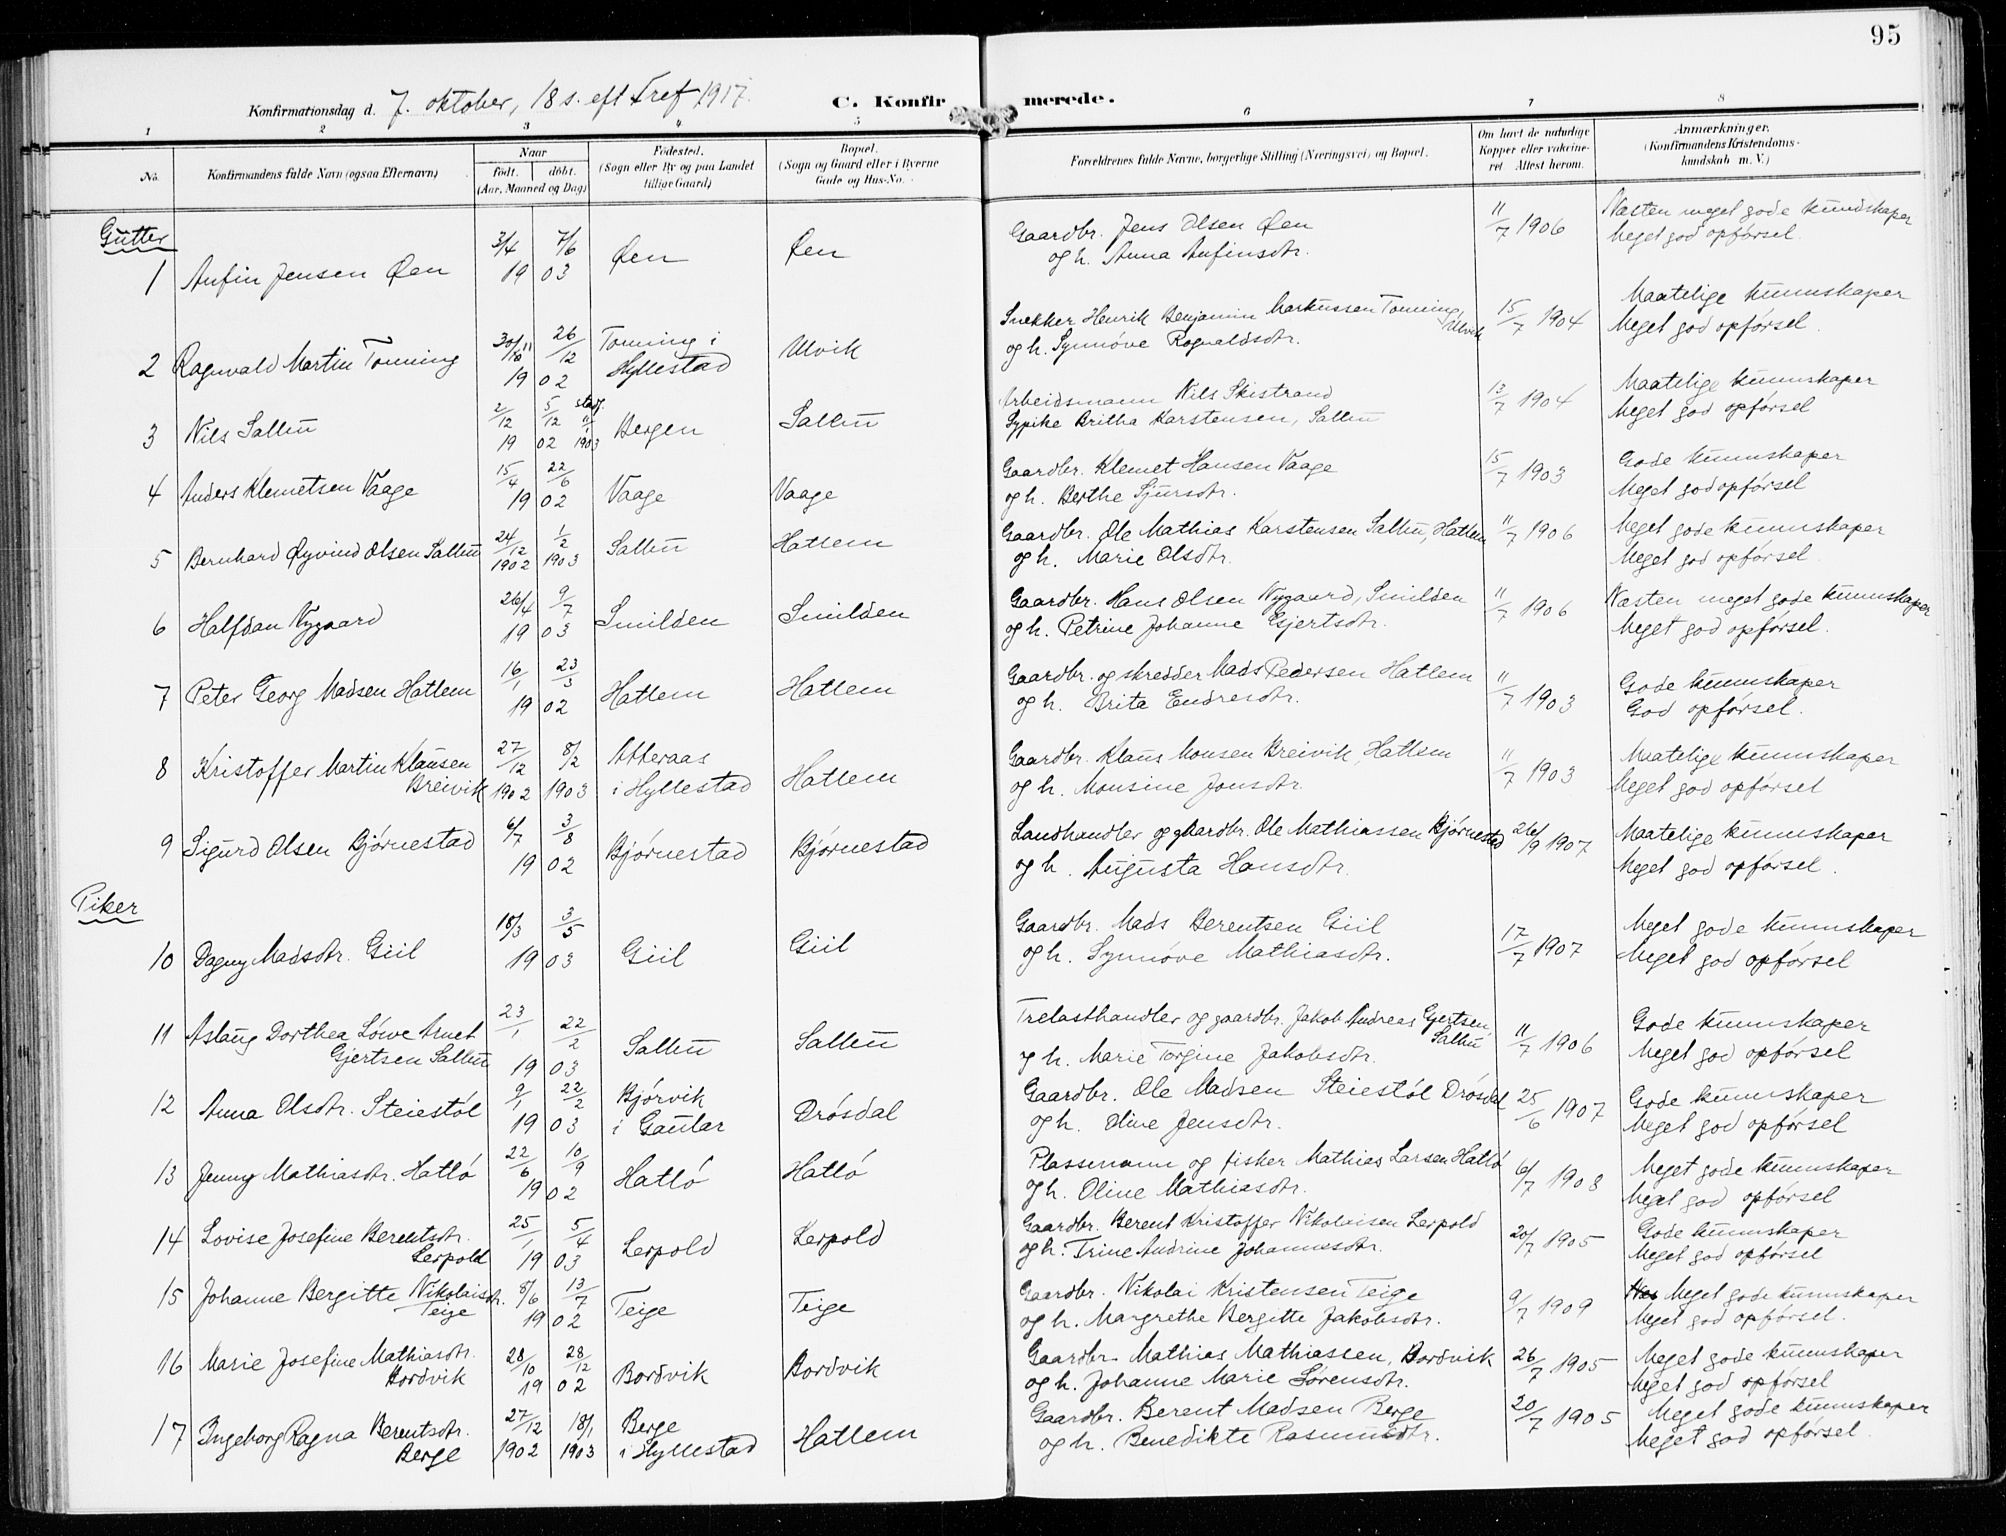 95
Konfirmationsdag d. 7. oktober, 18 s. eft Tref 1917.
C. Konfirmerede.
1 2 3 4 5 6 7 8
No. Konfirmandens fulde Navn (ogsaa Efternavn) Naar født. døbt. (Aar, Maaned og Dag) Fødested. (Sogn eller By og paa Landet tillige Gaard) Bopæl. (Sogn og Gaard eller i Byerne Gade og Hus-No. Forældrenes fulde Navne, borgerlige Stilling (Næringsvei) og Bopæl. Om havt de naturlige Kopper eller vaccineret Attest herom. Anmærkninger. (Konfirmandens Kristendomskundskab m. V.)
Gutter
1 Anfin Jensen Øen 3/4 7/6 1903 Øen Øen Gaardbr. Jens Olsen Øen 11/7 1906 Næsten meget gode kundskaper
og h. Anna Anfinsdtr. Meget god opførsel.
2 Ragnvald Martin Tonning 30/11 26/12 1902 Tonning i Hyllestad Ulvik Snekker Henrik Benjamin Markussen Tonning, Ulvik 15/7 1904 Maatelige kunnskaper
og h. Synnøve Rognaldsdtr. Meget god opførsel.
3 Nils Sallu 2/12 5/12 1902 stadf. 1903 Bergen Sallu Arbeidsmann Nils Skistrand 13/7 1904 Maatelige kunnskaper
Pypike Britha Karstensen, Sallu Meget god opførsel
4 Anders Klemetsen Vaage 15/4 22/6 1902 Vaage Vaage Gaardbr. Klemet Hansen Vaage 15/7 1903 Gode kunnskaper
og h. Berthe Sjursdtr. Meget god opførsel
5 Bernhard Øyvind Olsen Sallu 24/12 1902 1/2 1903 Sallu Hatlem Gaardbr. Ole Mathias Karstensen Sallu, Hatlem 11/7 1906 Meget gode kunnskaper
og h. Marie Olsdtr. Meget god opførsel
6 Halfdan Nygaard 26/4 9/7 1903 Smilden Smilden Gaardbr. Hans Olsen Nygaard, Smilden 11/7 1906 Næsten meget gode kunnskaper
og h. Petrine Johanne Gjertsdtr. Meget god opførsel.
7 Peter Georg Madsen Hatlem 16/1 23/3 1902 Hatlem Hatlem Gaardbr. og skredder Mads Pedersen Hatlem 11/7 1903 Gode kunnskaper
og h. Brita Endresdtr. God opførsel.
8 Kristoffer Martin Klausen Breivik 27/12 1902 8/2 1903 Atteraas i Hyllestad Hatlem Gaardbr. Klaus Monsen Breivik, Hatlem 11/7 1903 Maatelige kunnskaper
og h. Monsine Jonsdtr. Meget god opførsel
9 Sigurd Olsen Bjørnestad 6/7 3/8 1902 Bjørnestad Bjørnestad Landhandler og gaardbr. Ole Mathiassen Bjørnestad 26/9 1907 Maatelige kunnskaper
og h. Augusta Hansdtr. Meget god opførsel.
Piker
10 Dagny Madsdtr. Giil 18/3 3/5 1903 Giil Giil Gaardbr. Mads Berentsen Giil 17/7 1907 Meget gode kunnskaper
og h. Synnøve Mathiasdtr. Meget god opførsel
11 Aslaug Dorthea Løwe Arnet Gjertsen Sallu 23/1 22/2 1903 Sallu Sallu Trelasthandler og gaardbr. Jakob Andreas Gjertsen, Sallu 11/7 1906 Gode kunnskaper
og h. Marie Torgine Jakobsdtr. Meget god opførsel
12 Anna Olsdtr. Steiestøl 9/1 22/2 1903 Bjørvik i Gaular Drøsdal Gaardbr. Ole Madsen Steiestøl Drøsdal 25/6 1907 Gode kunnskaper
og h. Oline Jensdtr. Meget god opførsel
13 Jenny Mathiasdtr. Hatlø 22/6 10/9 1902 Hatlø Hatlø Plassmann og fisker Mathias Larsen Hatlø 6/7 1903 Meget gode kunnskaper
og h. Oline Mathiasdtr. Meget god opførsel
14 Lovise Josefine Berentsdtr. Lerpold 25/1 5/4 1903 Lerpold Lerpold Gaardbr. Berent Kristoffer Nikolaisen Lerpold 20/7 1905 Gode kunnskaper
og h. Trine Andrine Johannesdtr. Meget god opførsel
15 Johanne Bergitte Nikolaisdtr. Teige 8/6 13/7 1902 Teige Teige Gaardbr. Nikolai Kristensen Teige 9/7 1909 Meget gode kunnskaper
og h. Margrethe Bergitte Jakobsdtr. Meget god opførsel.
16 Marie Josefine Mathiasdtr. Bordvik 28/10 28/12 1902 Bordvik Bordvik Gaardbr. Mathias Mathiassen, Bordvik 26/7 1905 Meget gode kunnskaper
og h. Johanne Marie Sørensdtr. Meget god opførsel
17 Ingeborg Ragna Berentsdtr. Berge 27/12 1902 18/1 1903 Berge i Hyllestad Hatlem Gaardbr. Berent Madsen Berge 20/7 1905 Meget gode kunnskaper
og h. Benedikte Rasmusdtr. Meget god opførsel.